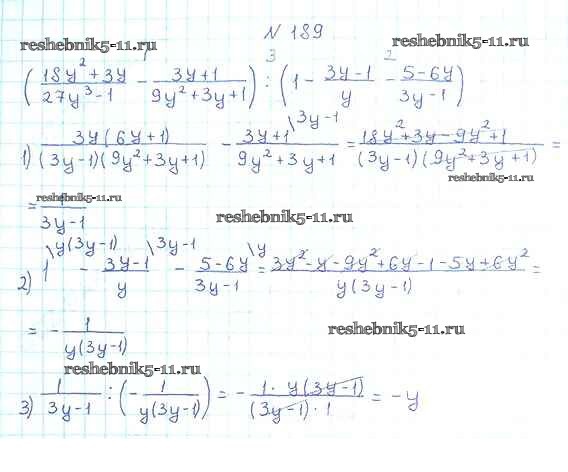 N 189
reshebnik5-11.ru
reshebnik5-11.ru
1 3 2
((18y² + 3y)/(27y³ - 1) - (3y + 1)/(9y² + 3y + 1)) : (1 - (3y - 1)/y - (5 - 6y)/(3y - 1))
1) (3y(6y + 1))/((3y - 1)(9y² + 3y + 1)) - (3y + 1)/(9y² + 3y + 1) \3y-1 = (18y² + 3y - 9y² + 1)/((3y - 1)(9y² + 3y + 1)) =
reshebnik5-11.ru
reshebnik5-11.ru
= 1/(3y - 1)
reshebnik5-11.ru
2) 1 \y(3y-1) - (3y - 1)/y \3y-1 - (5 - 6y)/(3y - 1) \y = (3y² - y - 9y² + 6y - 1 - 5y + 6y²)/(y(3y - 1)) =
= - 1/(y(3y - 1))
reshebnik5-11.ru
reshebnik5-11.ru
3) 1/(3y - 1) : (- 1/(y(3y - 1))) = - (1 · y(3y - 1))/((3y - 1) · 1) = -y